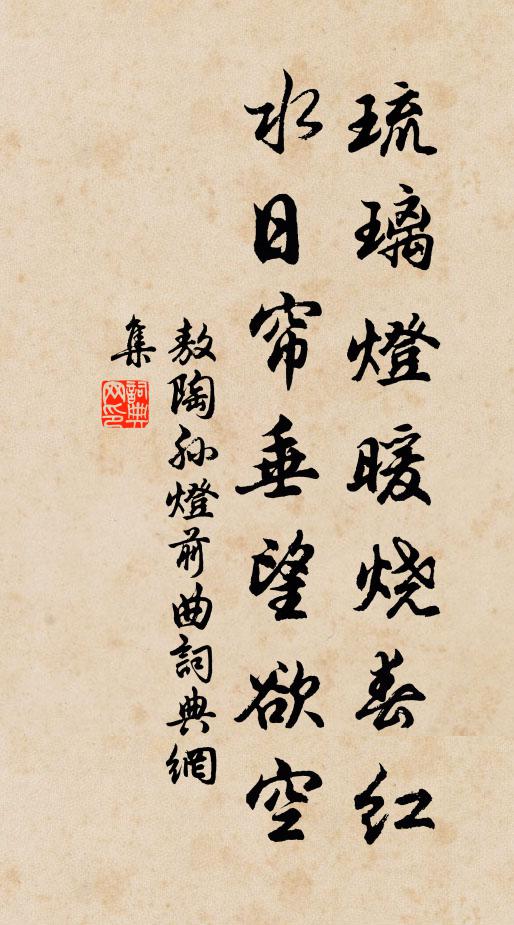 琉璃燈暖燒春红
水日帘垂望欲空
敖陶孫燈前曲詞典網
集
詞典網印